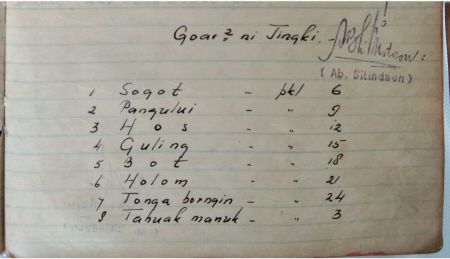 Goar² ni Jingki.
( Ab. Sitindaon )
1 Sogot - pkl 6
2 Pangului - " 9
3 Hos - " 12
4 Guling - " 15
5 Bot - " 18
6 Holom - " 21
7 Tonga borngin - " 24
8 Tahuak manuk - " 3